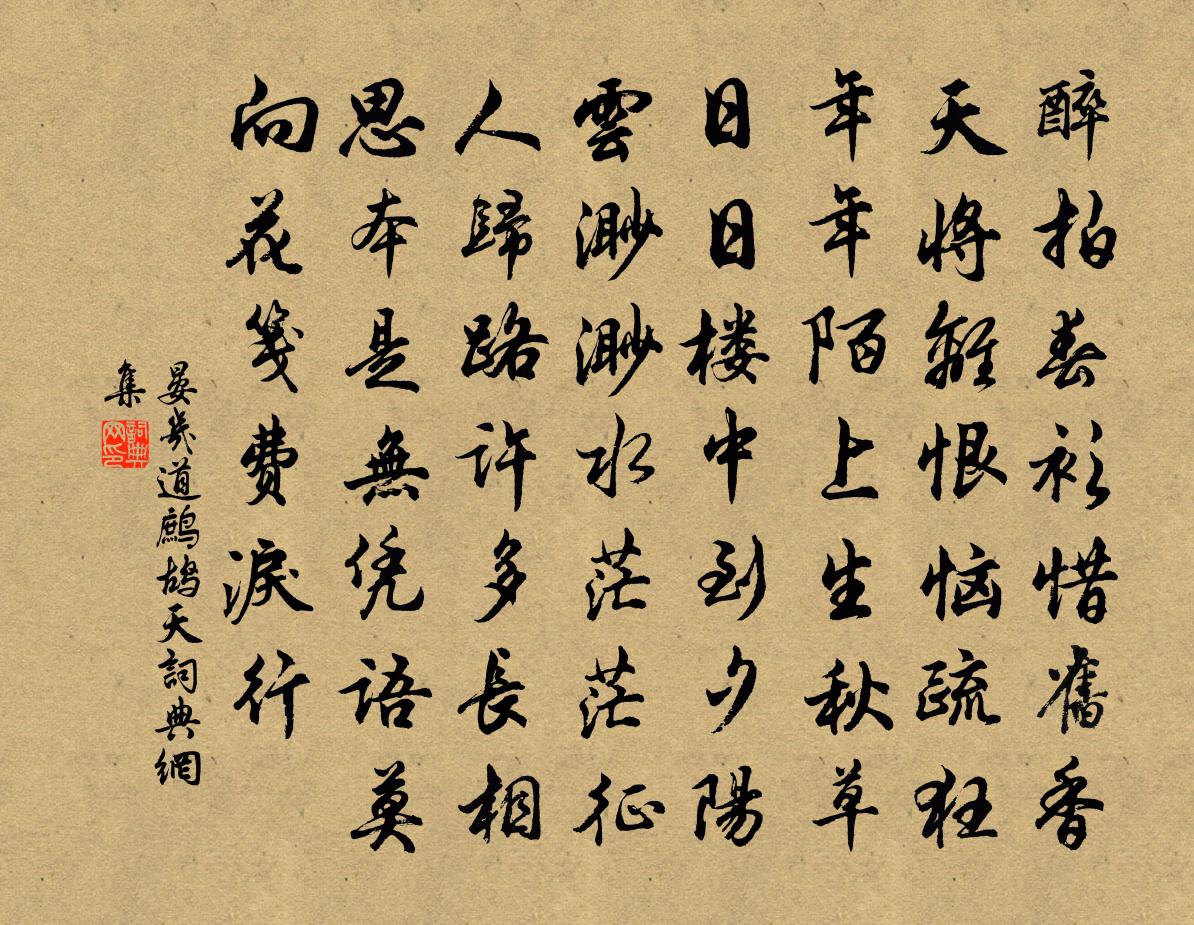 醉拍春衫惜舊香
天將離恨惱疏狂
年年陌上生秋草
日日楼中到夕陽
雲渺渺水茫茫征
人歸路許多長相
思本是無凭語莫
向花箋費淚行
晏幾道鷓鴣天詞典網
集
詞典網印